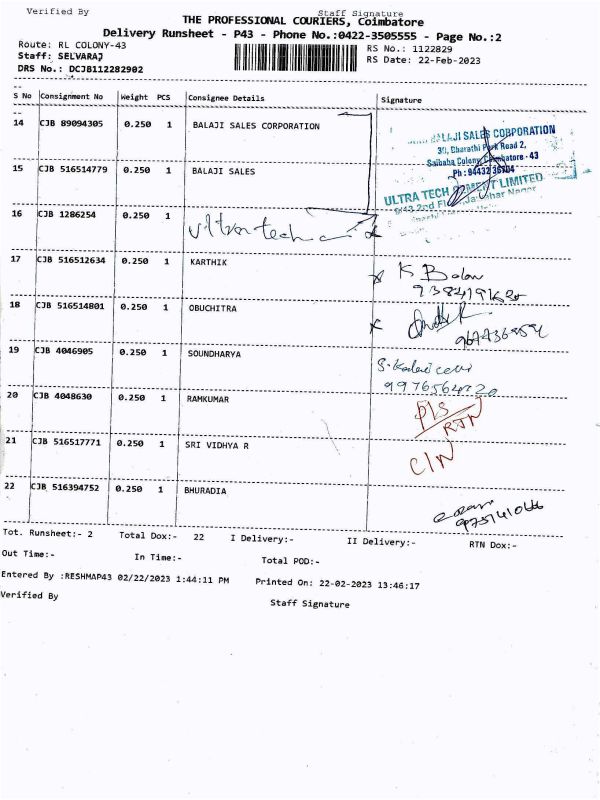 Verified By Staff Signature
THE PROFESSIONAL COURIERS, Coimbatore
Delivery Runsheet - P43 - Phone No.:0422-3505555 - Page No.:2
Route: RL COLONY-43 RS No.: 1122829
Staff: SELVARAJ RS Date: 22-Feb-2023
DRS No.: DCJB112282902
S No Consignment No Weight PCS Consignee Details Signature
14 CJB 89094305 0.250 1 BALAJI SALES CORPORATION
BALAJI SALES CORPORATION
30, Bharathi Park Road 2,
Saibaba Colony, Coimbatore - 43
Ph : 94432 36104
15 CJB 516514779 0.250 1 BALAJI SALES
ULTRA TECH CEMENT LIMITED
2nd
16 CJB 1286254 0.250 1 Ultratech
17 CJB 516512634 0.250 1 KARTHIK
K Balan
18 CJB 516514801 0.250 1 OBUCHITRA
19 CJB 4046905 0.250 1 SOUNDHARYA
20 CJB 4048630 0.250 1 RAMKUMAR
D/S
RTN
21 CJB 516517771 0.250 1 SRI VIDHYA R
C/N
22 CJB 516394752 0.250 1 BHURADIA
Tot. Runsheet:- 2 Total Dox:- 22 I Delivery:- II Delivery:- RTN Dox:-
Out Time:- In Time:- Total POD:-
Entered By :RESHMAP43 02/22/2023 1:44:11 PM Printed On: 22-02-2023 13:46:17
Verified By Staff Signature